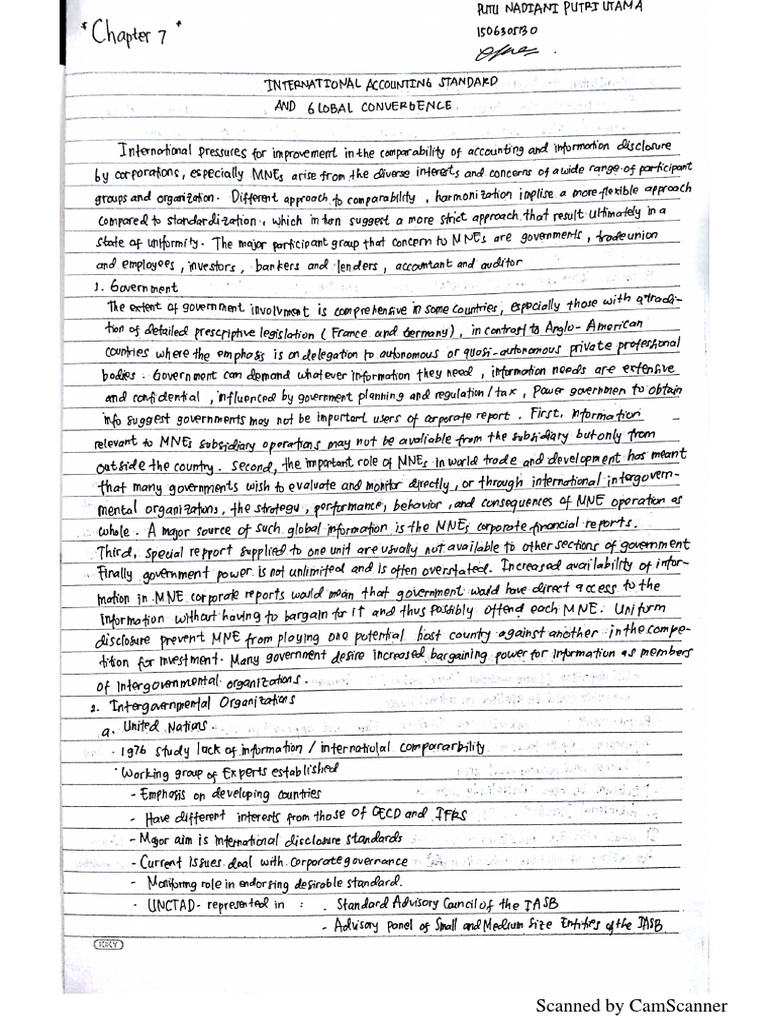 PUTU NADIANI PUTRI UTAMA
1506305130
* Chapter 7 *
INTERNATIONAL ACCOUNTING STANDARD
AND GLOBAL CONVERGENCE.
International pressures for improvement in the comparability of accounting and information disclosure
by corporations, especially MNEs arise from the diverse interests and concerns of a wide range of participant
groups and organization. Different approach to comparability, harmonization implise a more flexible approach
compared to standardization, which in turn suggest a more strict approach that result ultimately in a
state of uniformity. The major participant group that concern to MNEs are governments, trade union
and employees, investors, bankers and lenders, accountant and auditor
1. Government
The extent of government involvment is comprehensive in some countries, especially those with a tradi-
tion of detailed prescriptive legislation (France and Germany), in contrast to Anglo-American
countries where the emphasis is on delegation to autonomous or quasi-autonomous private professional
bodies. Government can demand whatever information they need, information needs are extensive
and confidential, influenced by government planning and regulation/tax, Power governmen to obtain
info suggest governments may not be important users of corporate report. First, information
relevant to MNEs subsidiary operations may not be avaliable from the subsidiary but only from
outside the country. Second, the important role of MNEs in world trade and development has meant
that many governments wish to evaluate and monitor directly, or through international intergovern-
mental organizations, the strategy, performance, behavior, and consequences of MNE operation as
whole. A major source of such global information is the MNEs corporate financial reports.
Third, special report supplied to one unit are usually not available to other sections of government
Finally government power is not unlimited and is often overstated. Increased availability of infor-
mation in MNE corporate reports would mean that government would have direct access to the
information without having to bargain for it and thus possibly offend each MNE. Uniform
disclosure prevent MNE from playing one potential host country against another in the compe-
tition for investment. Many government desire increased bargaining power for information as members
of intergovernmental organizations.
2. Intergovernmental Organizations
a. United Nations.
· 1976 study lack of information / internatiolal compararbility
· Working group of Experts established
- Emphasis on developing countries
- Have different interests from those of OECD and IFRS
- Major aim is international disclosure standards
- Current issues deal with corporate governance
- Monitoring role in endorsing desirable standard.
- UNCTAD- represented in : . Standard Advisory Council of the IASB
- Advisory panel of Small and Medium Size Entities of the IASB
KIKY
Scanned by CamScanner